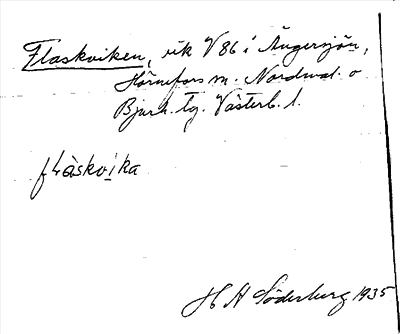 Flaskviken, vik V 86 i Ängersjön,
Hörnefors m. Nordmal. o
Bjurh. tg. Västerb. l.
flàskvika
H A Söderberg 1935